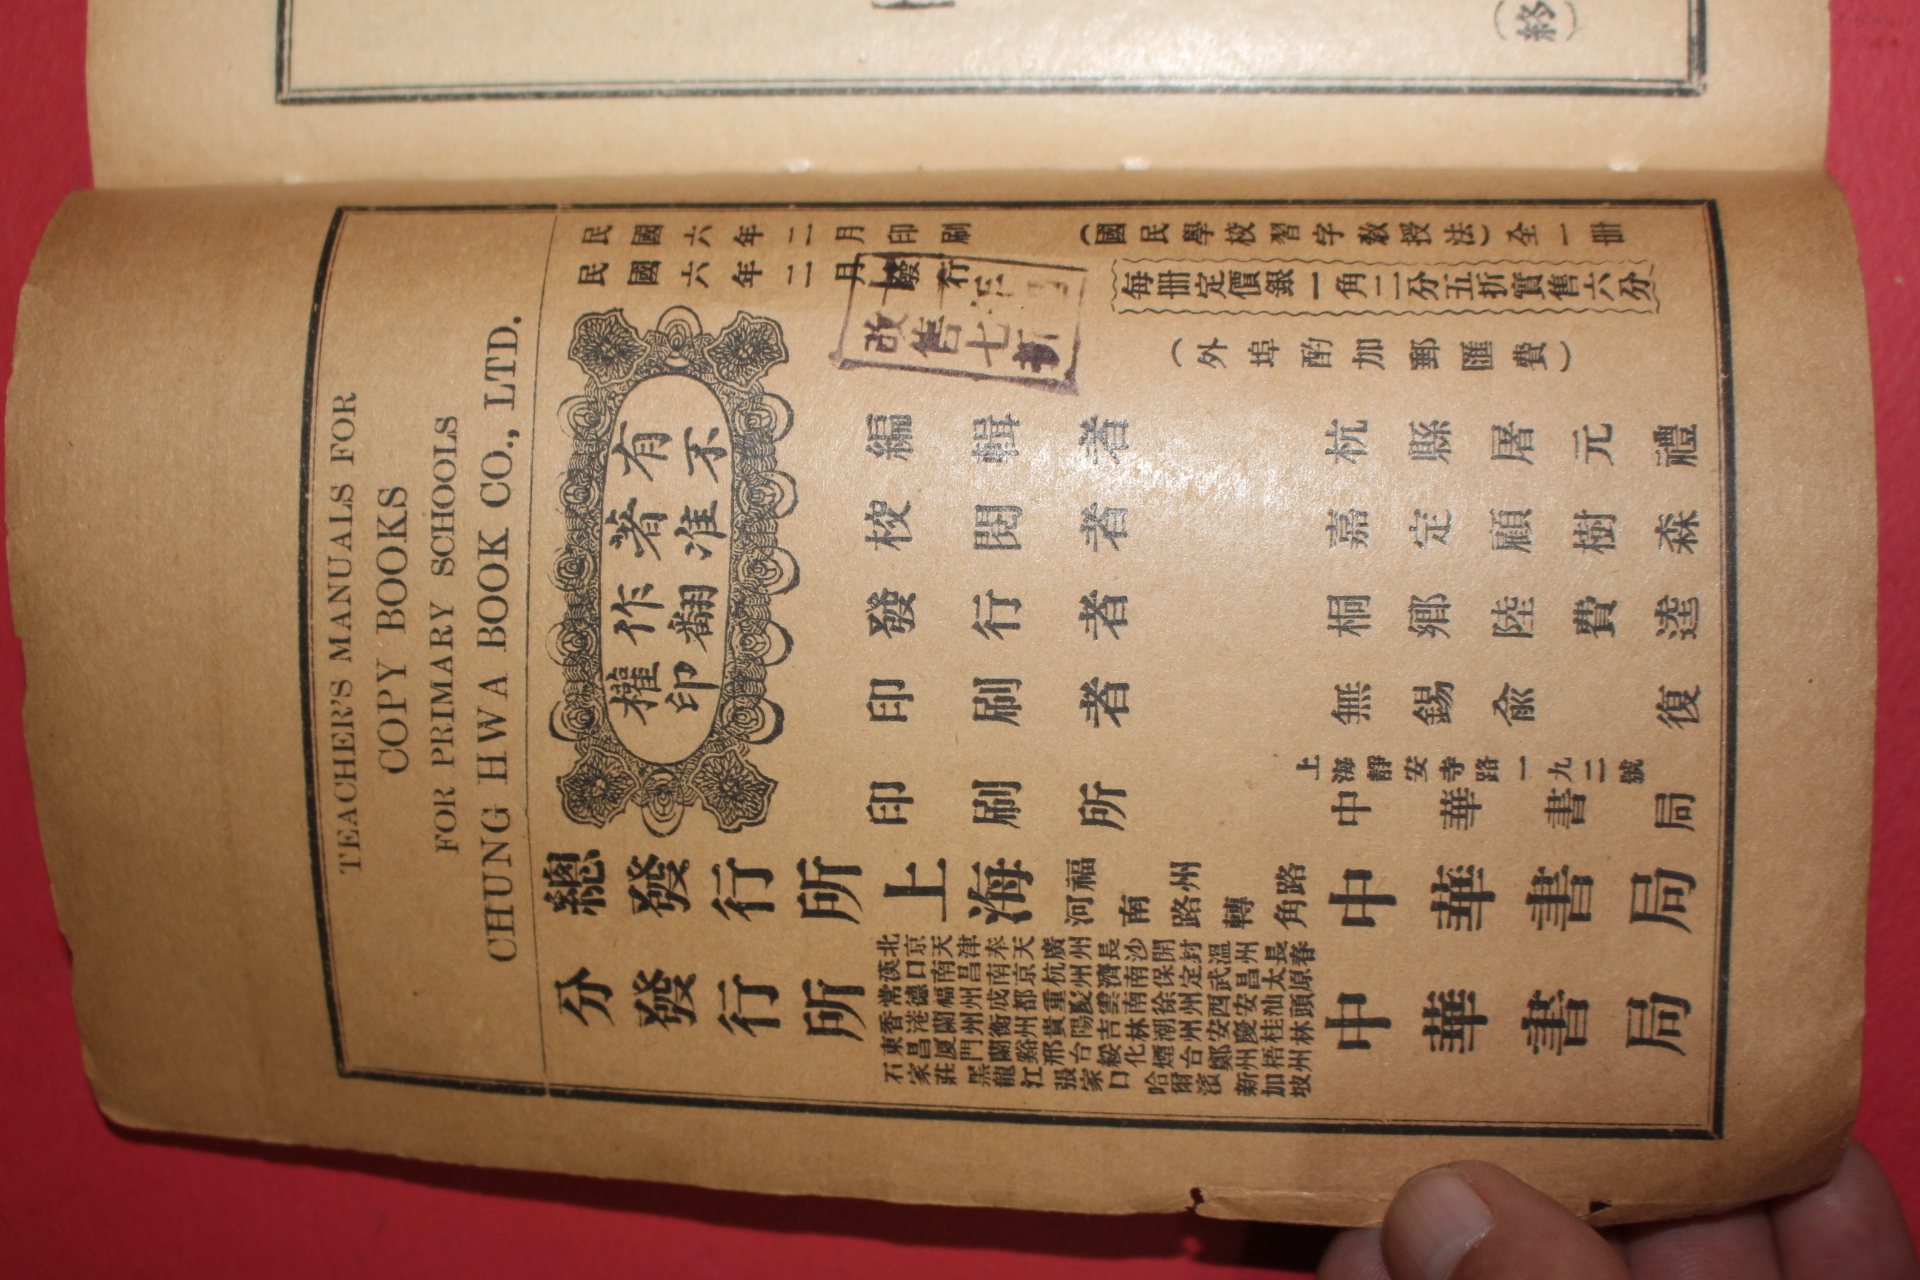 （終）
TEACHER'S MANUALS FOR
COPY BOOKS
FOR PRIMARY SCHOOLS
CHUNG HWA BOOK CO., LTD.
民國六年二月印刷
民國六年二月發行
（國民學校習字教授法）全一冊
每冊定價銀一角二分五折實售六分
（外埠酌加郵匯費）
改售七折
有著作權
不准翻印
編輯者 杭縣屠元禮
校閱者 嘉定顧樹森
發行者 桐鄉陸費逵
印刷者 無錫俞復
印刷所 上海靜安寺路一九二號 中華書局
總發行所 上海福州路河南路轉角 中華書局
分發行所 中華書局
北京 天津 奉天 廣州 長沙 開封 溫州 長春
漢口 南昌 南京 杭州 濟南 保定 武昌 太原
常德 福州 成都 重慶 雲南 徐州 西安 汕頭